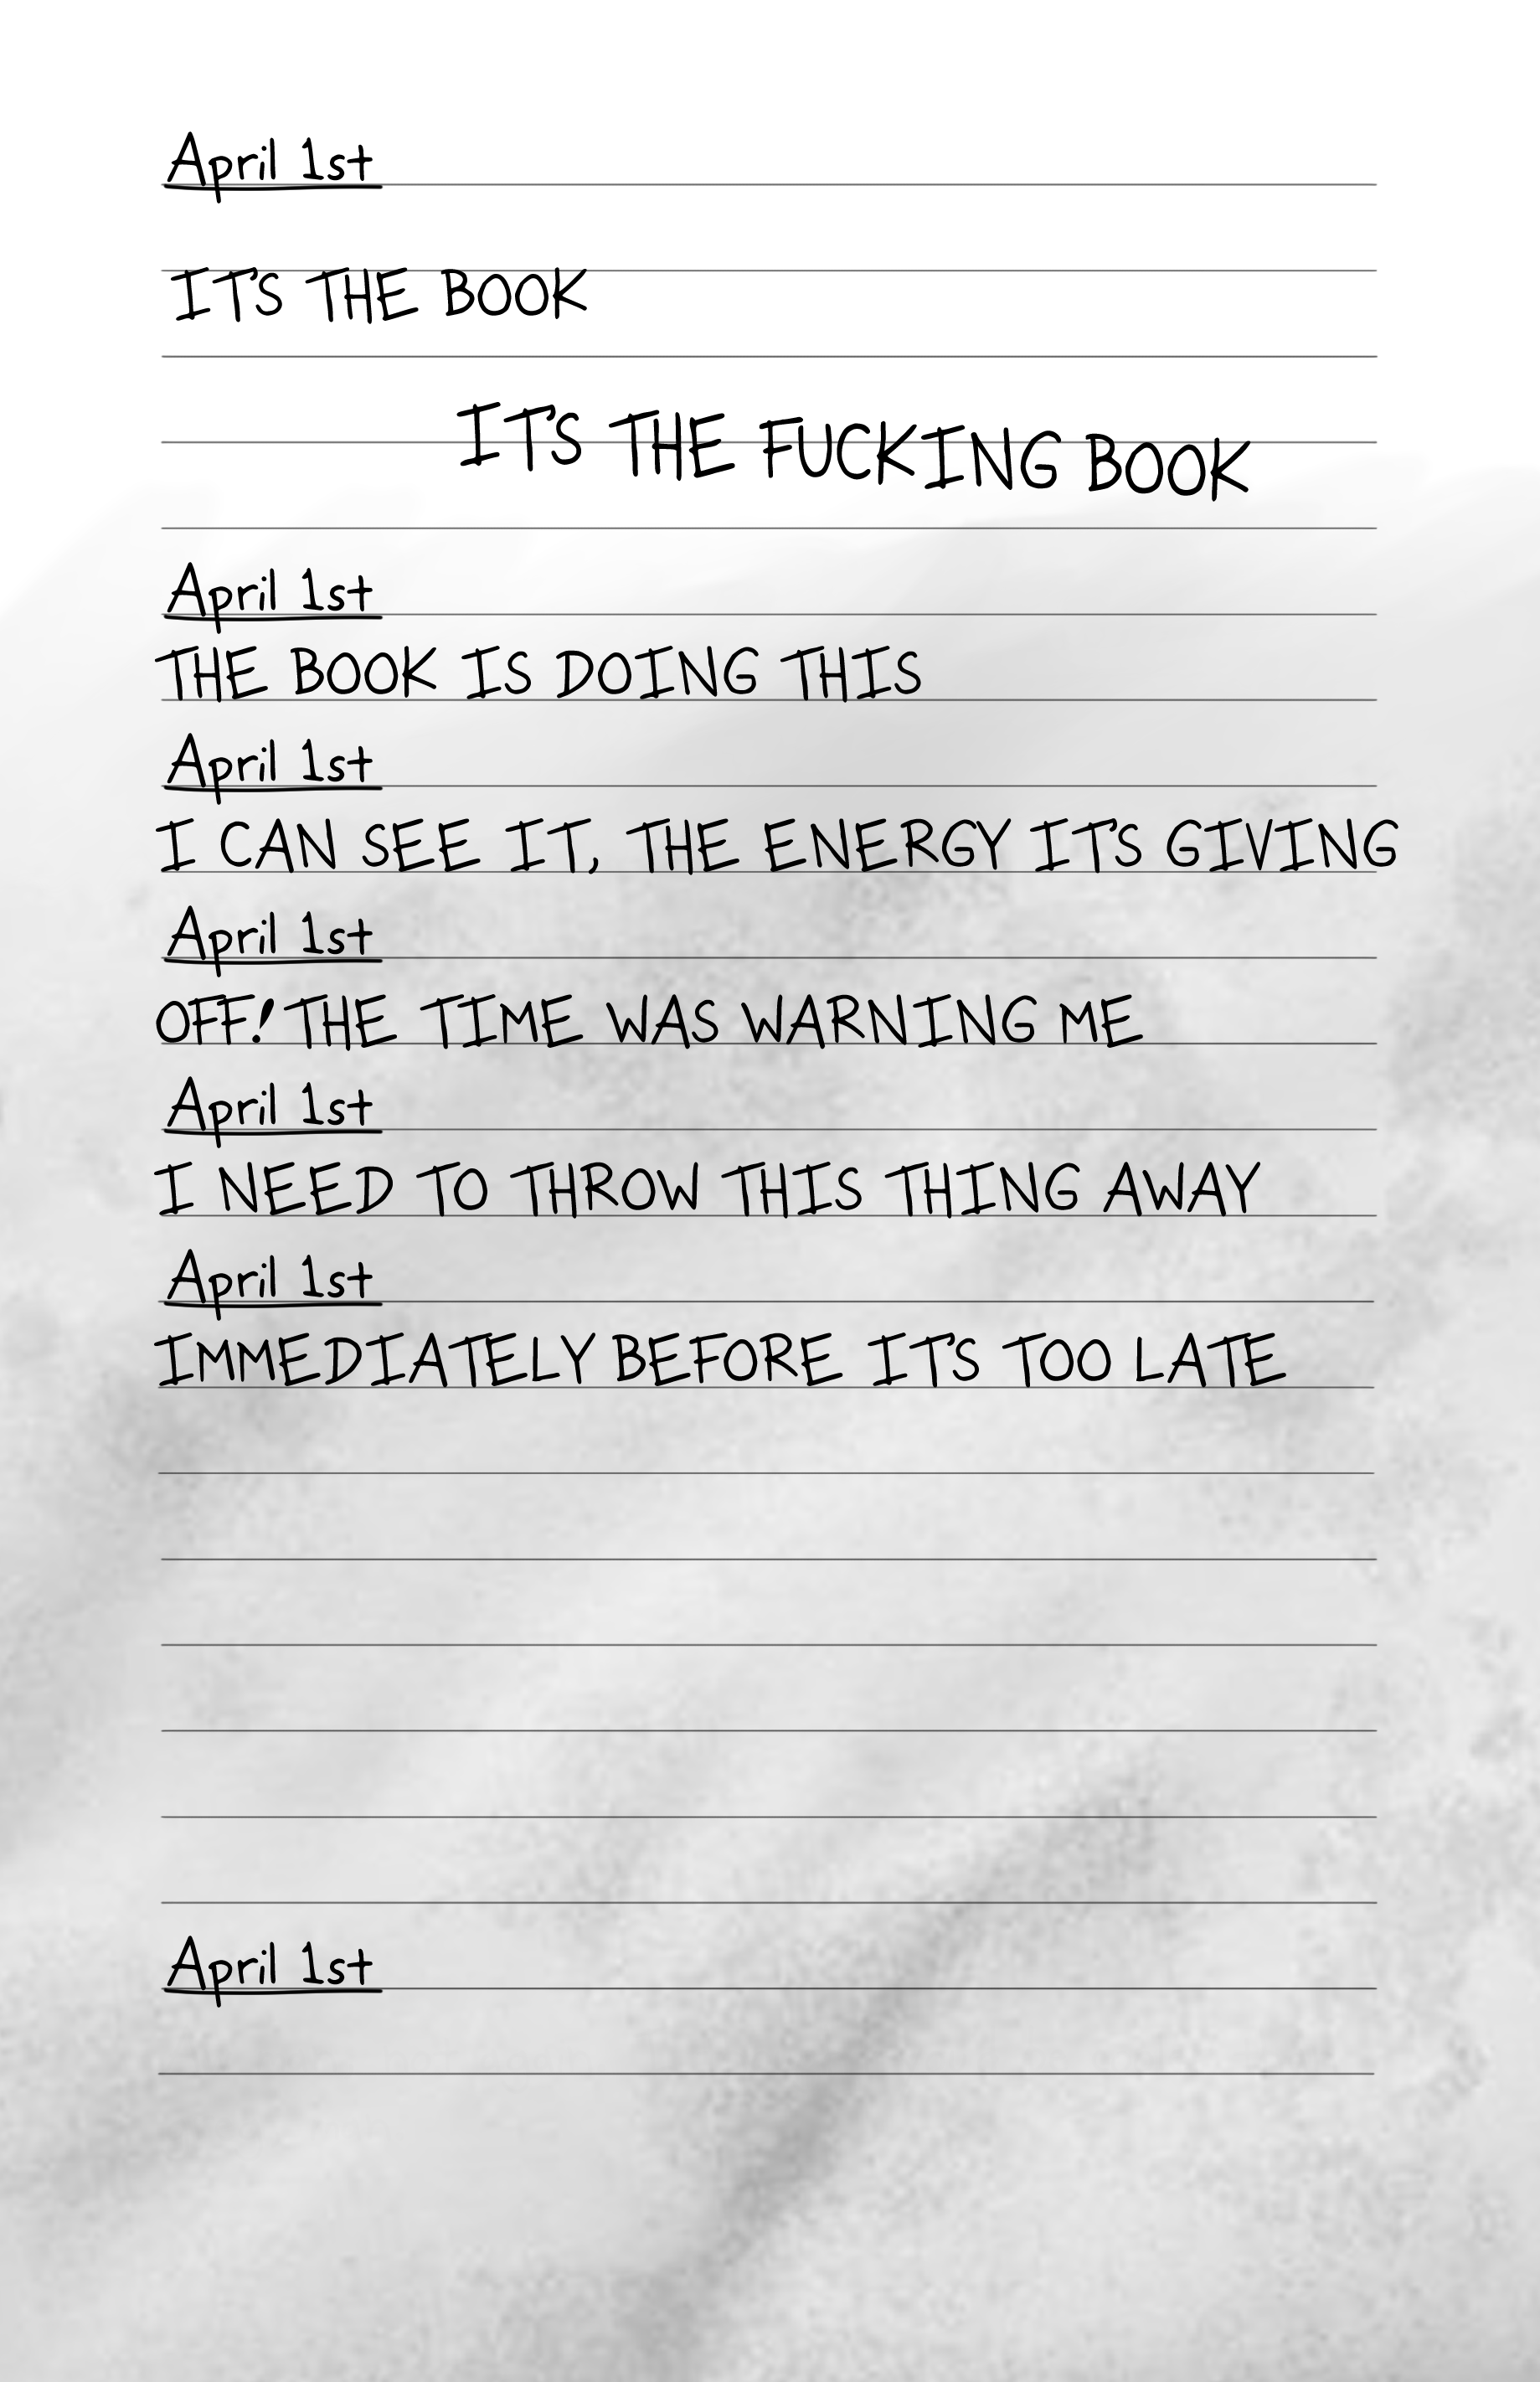 April 1st
IT'S THE BOOK
IT'S THE FUCKING BOOK
April 1st
THE BOOK IS DOING THIS
April 1st
I CAN SEE IT, THE ENERGY IT'S GIVING
April 1st
OFF! THE TIME WAS WARNING ME
April 1st
I NEED TO THROW THIS THING AWAY
April 1st
IMMEDIATELY BEFORE IT'S TOO LATE
April 1st